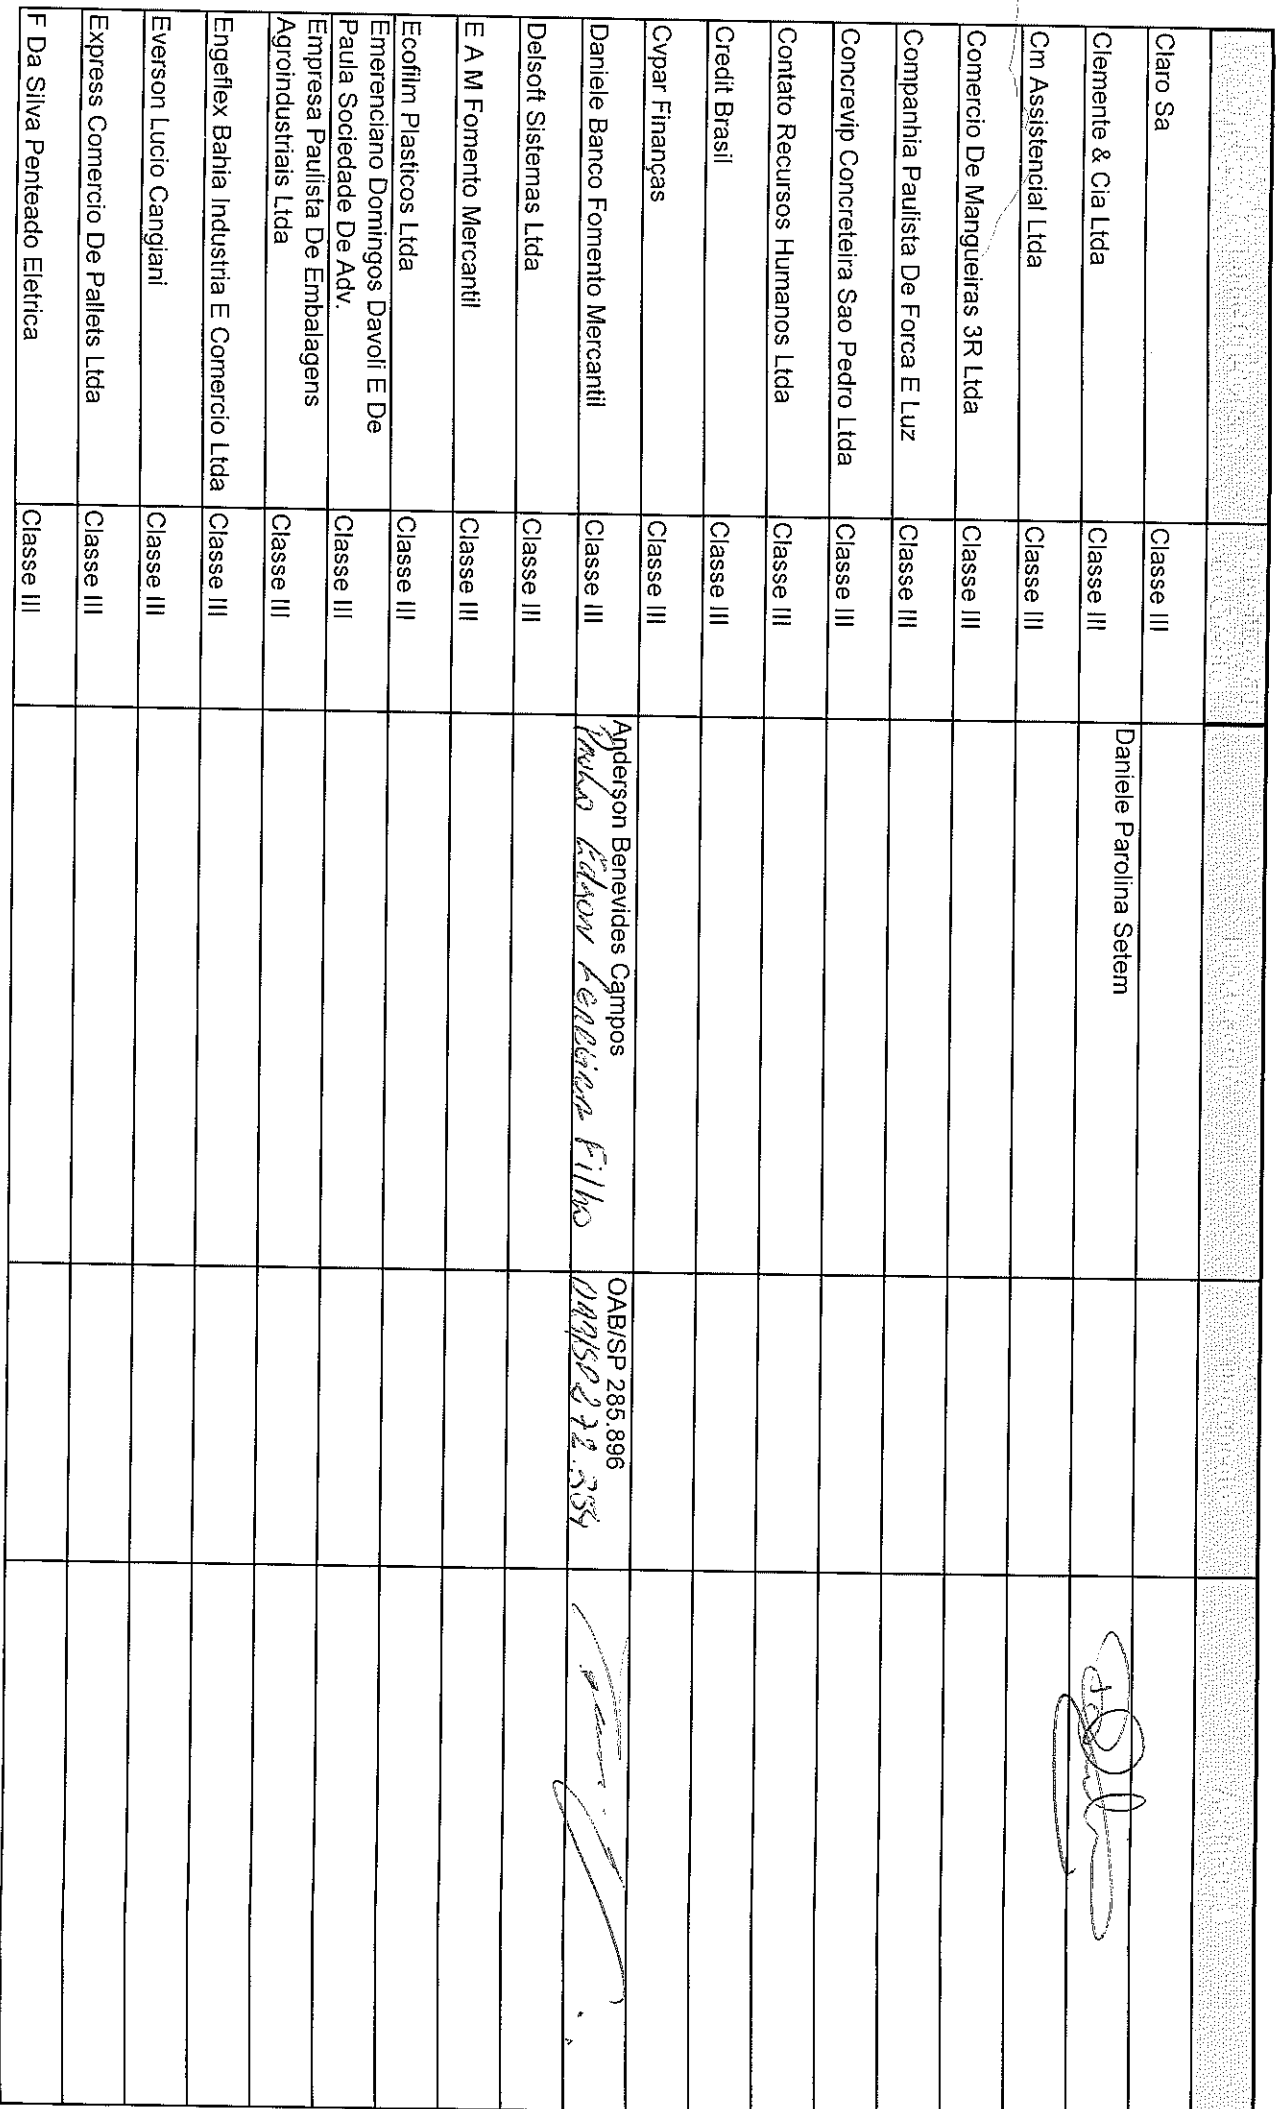 Claro Sa Classe III
Clemente & Cia Ltda Classe III Daniele Parolina Setem
Cm Assistencial Ltda Classe III
Comercio De Mangueiras 3R Ltda Classe III
Companhia Paulista De Forca E Luz Classe III
Concrevip Concreteira Sao Pedro Ltda Classe III
Contato Recursos Humanos Ltda Classe III
Credit Brasil Classe III
Cypar Finanças Classe III
Daniele Banco Fomento Mercantil Classe III Anderson Benevides Campos OAB/SP 285.896
Paulo Edson Ferreira Filho OAB/SP 272.354
Delsoft Sistemas Ltda Classe III
E A M Fomento Mercantil Classe III
Ecofilm Plasticos Ltda Classe III
Emerenciano Domingos Davoli E De
Paula Sociedade De Adv. Classe III
Empresa Paulista De Embalagens
Agroindustriais Ltda Classe III
Engeflex Bahia Industria E Comercio Ltda Classe III
Everson Lucio Cangiani Classe III
Express Comercio De Pallets Ltda Classe III
F Da Silva Penteado Eletrica Classe III